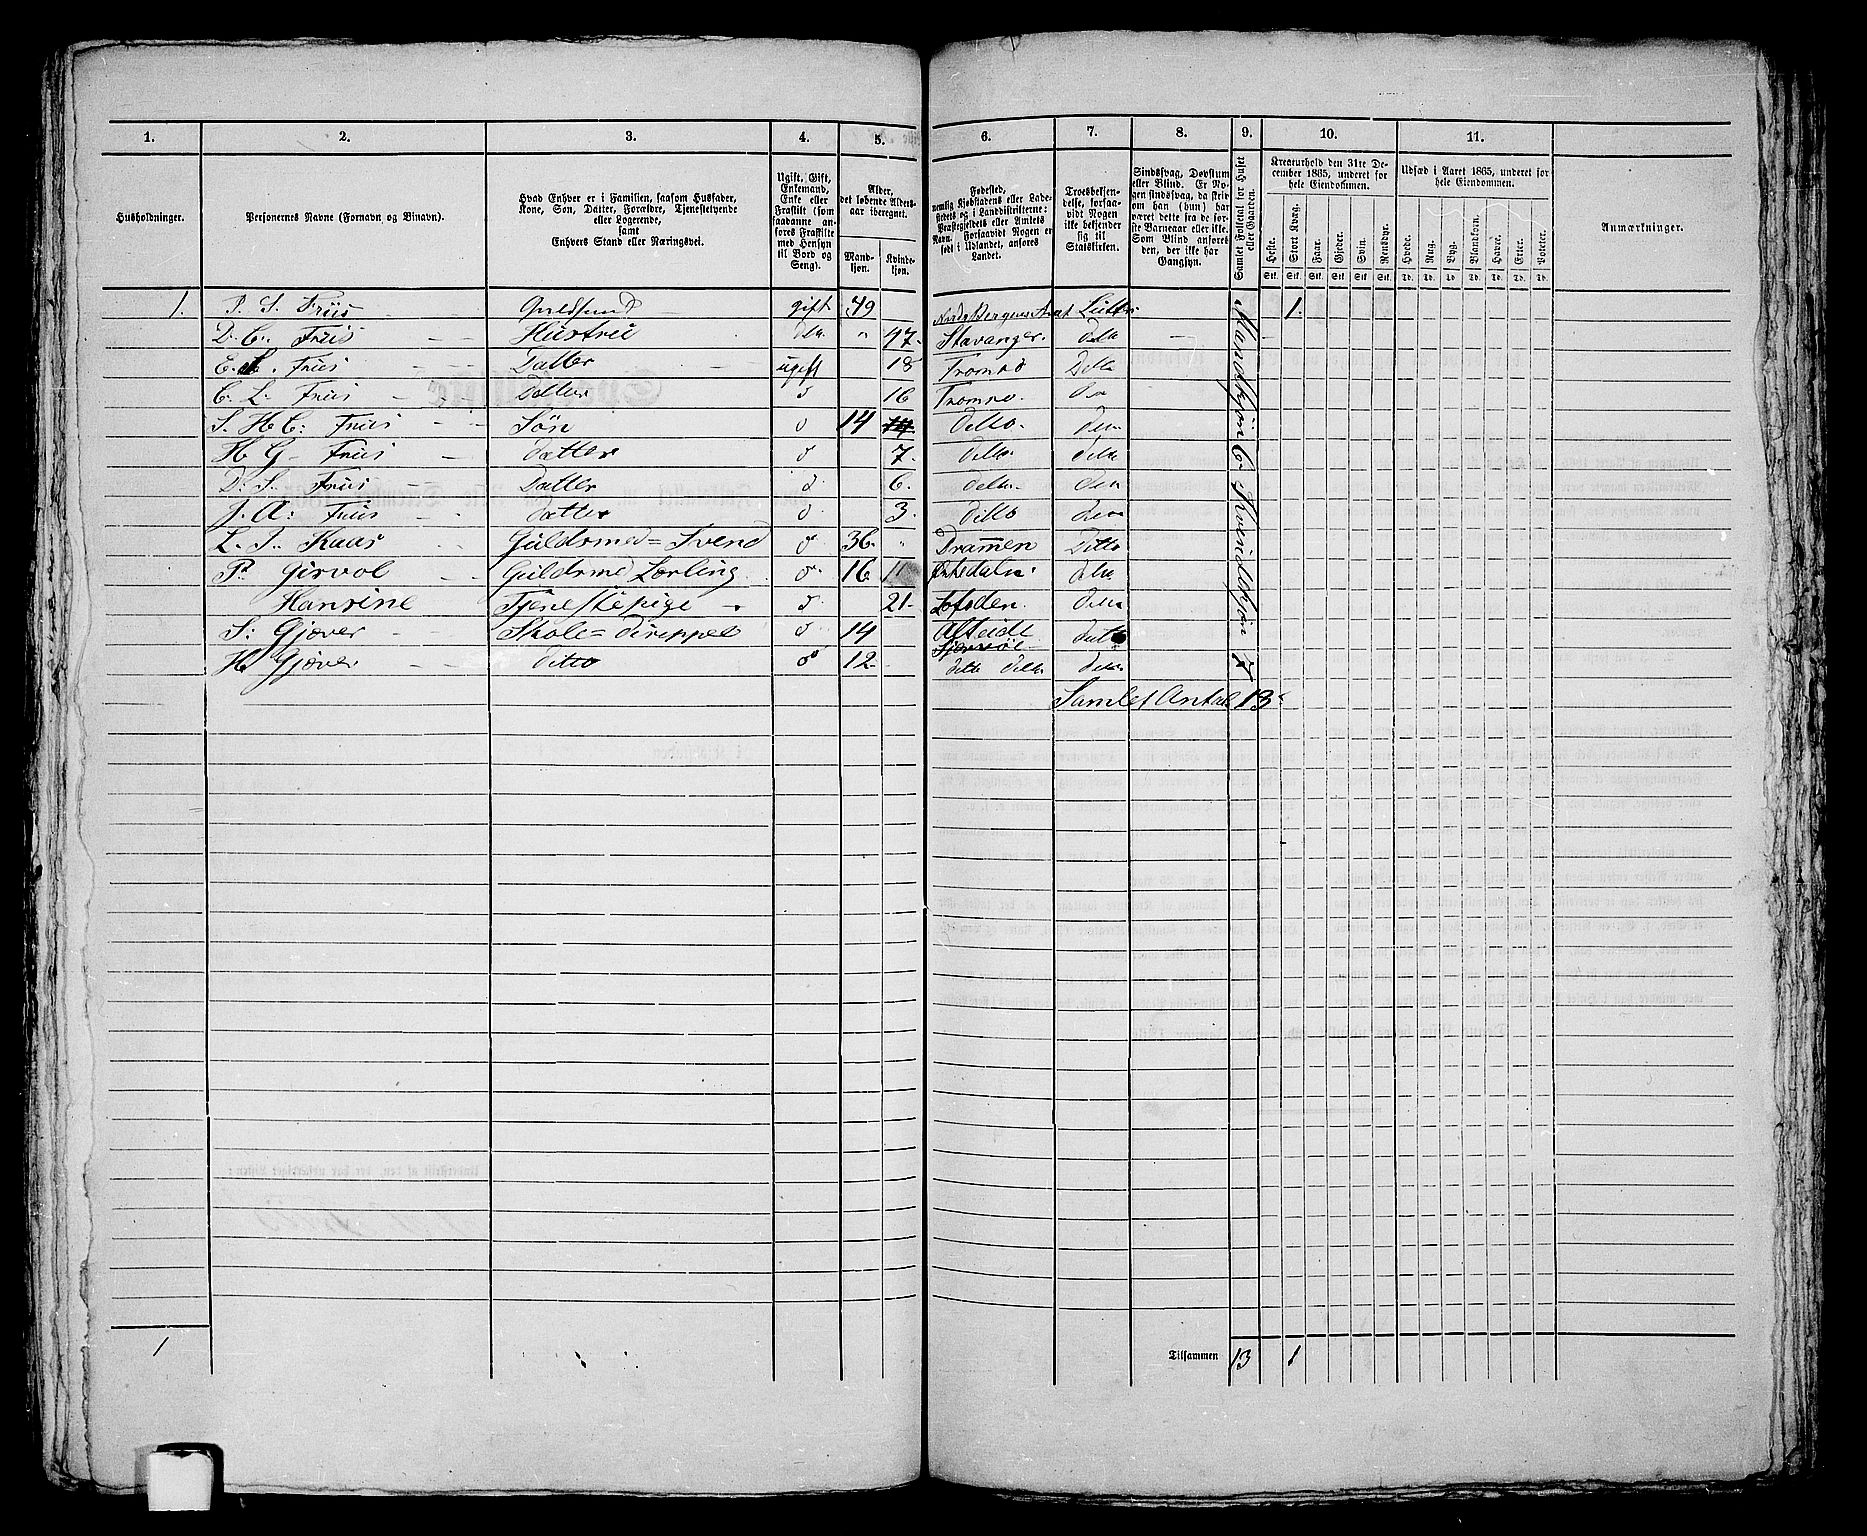 1. 2. 3. 4. 5. 6. 7. 8. 9. 10. 11.
Husholdninger.
Personernes Navne (Fornavn og Binavn).
Hvad Enhver er i Familien, saasom Husfader,
Kone, Søn, Datter, Forældre, Tjenestetyende
eller Logerende,
samt
Enhvers Stand eller Næringsvei.
Ugift, Gift,
Enkemand,
Enke eller
Fraskilt (som
saadanne an-
føres Fraskilte
med Hensyn
til Bord og
Seng).
Alder,
det løbende Alders-
aar iberegnet.
Mand-
kjøn.
Kvinde-
kjøn.
Fødested,
nemlig Kjøbstadens eller Lade-
stedets og i Landdistrikterne:
Præstegjeldets eller Amtets
Navn. Forsaavidt Nogen er
født i Udlandet, anføres
Landet.
Troesbekjen-
delse, forsaa-
vidt Nogen
ikke bekjender
sig til
Statskirken.
Sindssvag, Døvstum
eller Blind. Er No-
gen sindssvag, da skriv
om han (hun) har
været dette fra de før-
ste Barneaar eller ikke.
Som Blind anføres
den, der ikke har
Gangsyn.
Samlet Folketal for Huset
eller Gaarden.
Kreaturhold den 31te De-
cember 1865, underet for
hele Eiendommen.
Heste. Stort Kvæg. Faar. Gjeder. Svin. Rensdyr.
Stk. Stk. Stk. Stk. Stk. Stk.
Udsæd i Aaret 1865, underet for
hele Eiendommen.
Hvede. Rug. Byg. Blandkorn. Havre. Erter. Poteter.
Td. Td. Td. Td. Td. Td. Td.
Anmærkninger.
1. P. S. Friis gift 49 1.
D. C. Friis Hustrue 47 Stavanger. ditto
Friis Datter ugift 18 Tromsø Ditto
C. L. Friis Datter 16 Tromsø
S. H. C: Friis Søn 14 Ditto
H G Friis datter 7 ditto
D. S. Friis Datter 6 ditto
J. A: Friis datter 3 Ditto
L. J. Kaas Guldsmed=Svend 36 Drammen Ditto
P. Girvol Guldsmed Lærling 16 Ørkedalen
Hansine Tjenestepige 21 Lofoden
S: Gjæver Skole= 14 Alteidet ditto
H Gjæver ditto 12
Mandkjøn 6 Kvindekjøn 7
Samlet Antal 13
1
Tilsammen 13 1